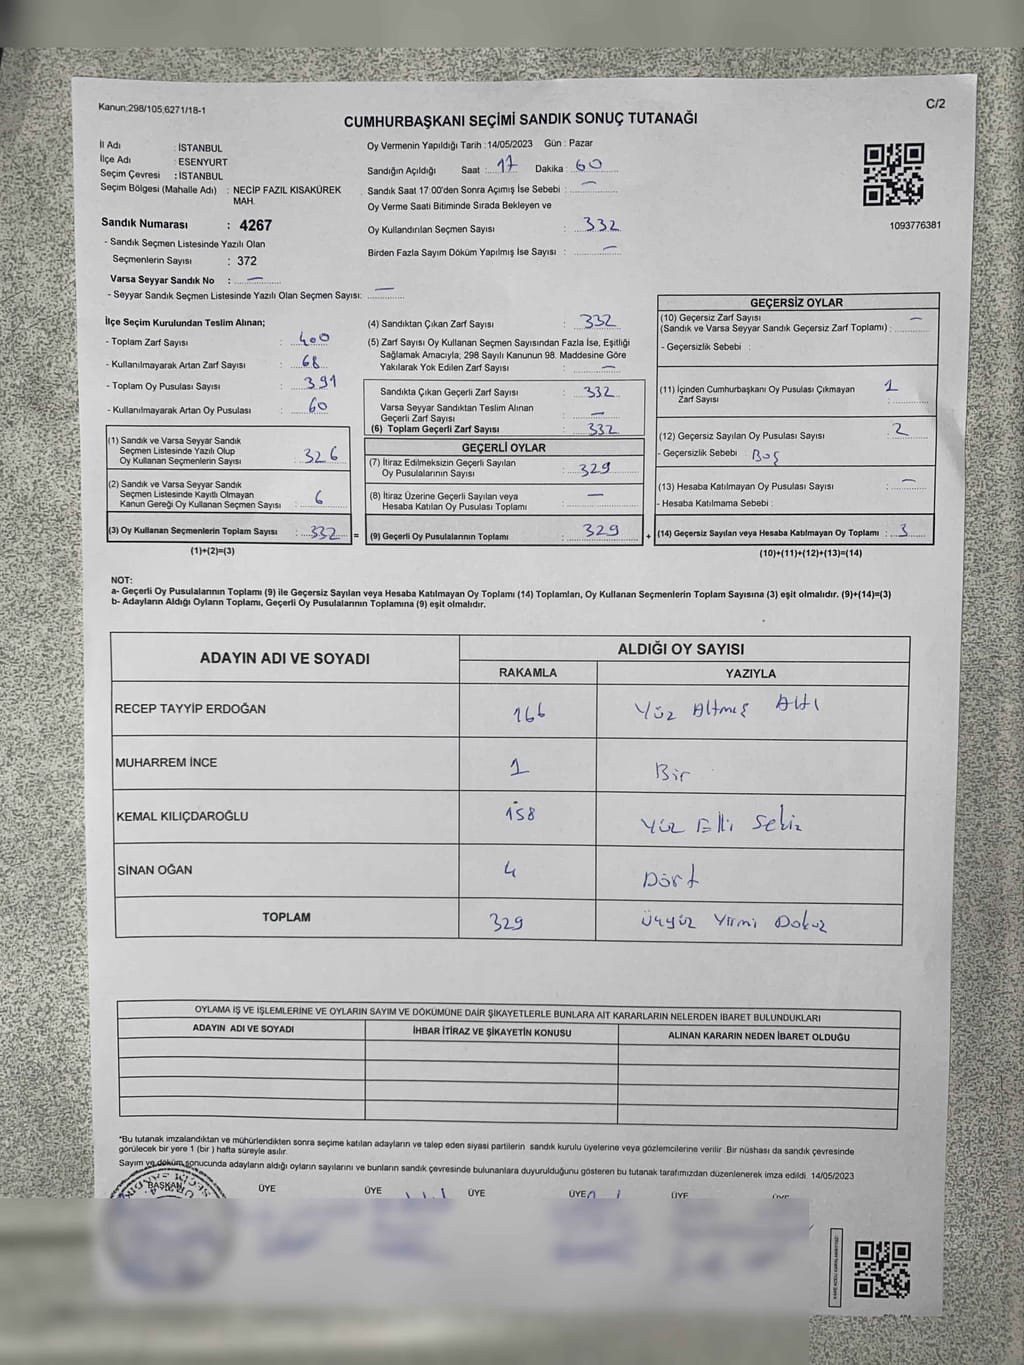 Kanun;298/105;6271/18-1
C/2
CUMHURBAŞKANI SEÇİMİ SANDIK SONUÇ TUTANAĞI
İl Adı : İSTANBUL
İlçe Adı : ESENYURT
Seçim Çevresi : İSTANBUL
Seçim Bölgesi (Mahalle Adı) : NECİP FAZIL KISAKÜREK
MAH.
Sandık Numarası : 4267
- Sandık Seçmen Listesinde Yazılı Olan
Seçmenlerin Sayısı : 372
Varsa Seyyar Sandık No : —
- Seyyar Sandık Seçmen Listesinde Yazılı Olan Seçmen Sayısı: —
Oy Vermenin Yapıldığı Tarih : 14/05/2023 Gün : Pazar
Sandığın Açıldığı Saat : 17 Dakika : 60
Sandık Saat 17:00'den Sonra Açımış İse Sebebi : —
Oy Verme Saati Bitiminde Sırada Bekleyen ve
Oy Kullandırılan Seçmen Sayısı : 332
Birden Fazla Sayım Döküm Yapılmış İse Sayısı : —
1093776381
İlçe Seçim Kurulundan Teslim Alınan;
- Toplam Zarf Sayısı : 400
- Kullanılmayarak Artan Zarf Sayısı : 68
- Toplam Oy Pusulası Sayısı : 391
- Kullanılmayarak Artan Oy Pusulası : 60
(1) Sandık ve Varsa Seyyar Sandık
Seçmen Listesinde Yazılı Olup
Oy Kullanan Seçmenlerin Sayısı : 326
(2) Sandık ve Varsa Seyyar Sandık
Seçmen Listesinde Kayıtlı Olmayan
Kanun Gereği Oy Kullanan Seçmen Sayısı : 6
(3) Oy Kullanan Seçmenlerin Toplam Sayısı : 332
(1)+(2)=(3)
(4) Sandıktan Çıkan Zarf Sayısı : 332
(5) Zarf Sayısı Oy Kullanan Seçmen Sayısından Fazla İse, Eşitliği
Sağlamak Amacıyla; 298 Sayılı Kanunun 98. Maddesine Göre
Yakılarak Yok Edilen Zarf Sayısı : —
Sandıkta Çıkan Geçerli Zarf Sayısı : 332
Varsa Seyyar Sandıktan Teslim Alınan
Geçerli Zarf Sayısı : —
(6) Toplam Geçerli Zarf Sayısı : 332
GEÇERLİ OYLAR
(7) İtiraz Edilmeksizin Geçerli Sayılan
Oy Pusulalarının Sayısı : 329
(8) İtiraz Üzerine Geçerli Sayılan veya
Hesaba Katılan Oy Pusulası Toplamı : —
= (9) Geçerli Oy Pusulalarının Toplamı : 329
GEÇERSİZ OYLAR
(10) Geçersiz Zarf Sayısı —
(Sandık ve Varsa Seyyar Sandık Geçersiz Zarf Toplamı) :
- Geçersizlik Sebebi :
(11) İçinden Cumhurbaşkanı Oy Pusulası Çıkmayan 1
Zarf Sayısı :
(12) Geçersiz Sayılan Oy Pusulası Sayısı : 2
- Geçersizlik Sebebi : Boş
(13) Hesaba Katılmayan Oy Pusulası Sayısı : —
- Hesaba Katılmama Sebebi :
+ (14) Geçersiz Sayılan veya Hesaba Katılmayan Oy Toplamı : 3
(10)+(11)+(12)+(13)=(14)
NOT:
a- Geçerli Oy Pusulalarının Toplamı (9) ile Geçersiz Sayılan veya Hesaba Katılmayan Oy Toplamı (14) Toplamları, Oy Kullanan Seçmenlerin Toplam Sayısına (3) eşit olmalıdır. (9)+(14)=(3)
b- Adayların Aldığı Oyların Toplamı, Geçerli Oy Pusulalarının Toplamına (9) eşit olmalıdır.
ADAYIN ADI VE SOYADI ALDIĞI OY SAYISI
RAKAMLA YAZIYLA
RECEP TAYYİP ERDOĞAN 166 Yüz Altmış Altı
MUHARREM İNCE 1 Bir
KEMAL KILIÇDAROĞLU 158 Yüz Elli Sekiz
SİNAN OĞAN 4 Dört
TOPLAM 329 Üçyüz Yirmi Dokuz
OYLAMA İŞ VE İŞLEMLERİNE VE OYLARIN SAYIM VE DÖKÜMÜNE DAİR ŞİKAYETLERLE BUNLARA AİT KARARLARIN NELERDEN İBARET BULUNDUKLARI
ADAYIN ADI VE SOYADI İHBAR İTİRAZ VE ŞİKAYETİN KONUSU ALINAN KARARIN NEDEN İBARET OLDUĞU
*Bu tutanak imzalandıktan ve mühürlendikten sonra seçime katılan adayların ve talep eden siyasi partilerin sandık kurulu üyelerine veya gözlemcilerine verilir. Bir nüshası da sandık çevresinde
görülecek bir yere 1 (bir) hafta süreyle asılır.
Sayım ve döküm sonucunda adayların aldığı oyların sayılarını ve bunların sandık çevresinde bulunanlara duyurulduğunu gösteren bu tutanak tarafımızdan düzenlenerek imza edildi. 14/05/2023
BAŞKAN ÜYE ÜYE ÜYE ÜYE ÜYE ÜYE